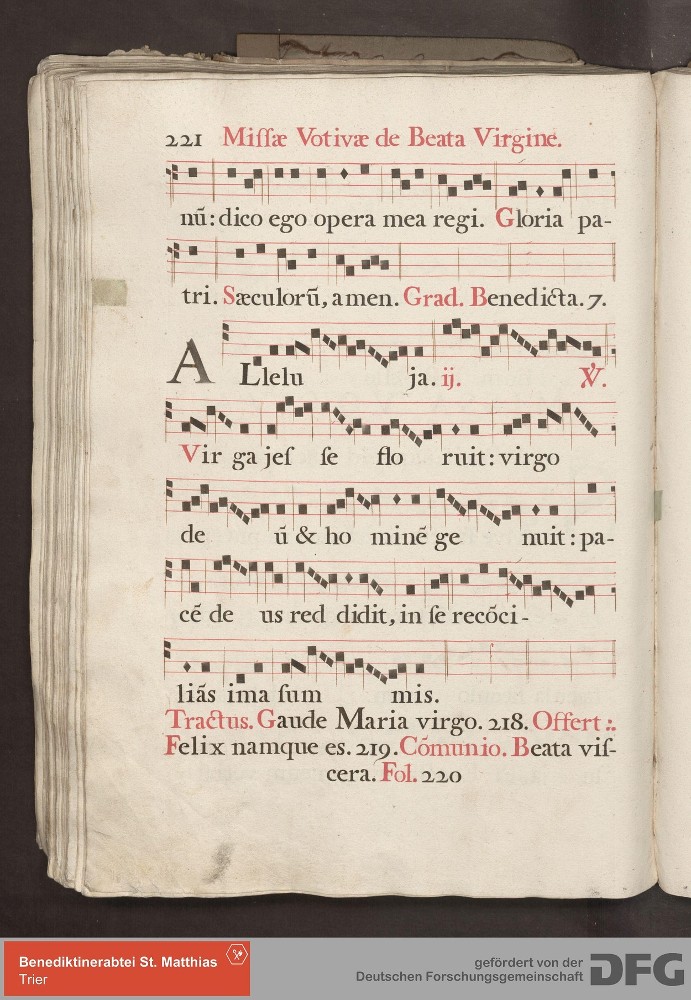 221 Miſſæ Votivæ de Beata Virgine.
nũ: dico ego opera mea regi. Gloria pa-
tri. Sæculorũ, amen. Grad. Benedicta. 7.
ALlelu ja. ij. ℣.
Vir ga jeſ ſe flo ruit: virgo
de ũ & ho minẽ ge nuit: pa-
cẽ de us red didit, in ſe recõci-
liãs ima ſum mis.
Tractus. Gaude Maria virgo. 218. Offert ⁖
Felix namque es. 219. Cõmunio. Beata viſ-
cera. Fol. 220
Benediktinerabtei St. Matthias
Trier
gefördert von der
Deutschen Forschungsgemeinschaft DFG